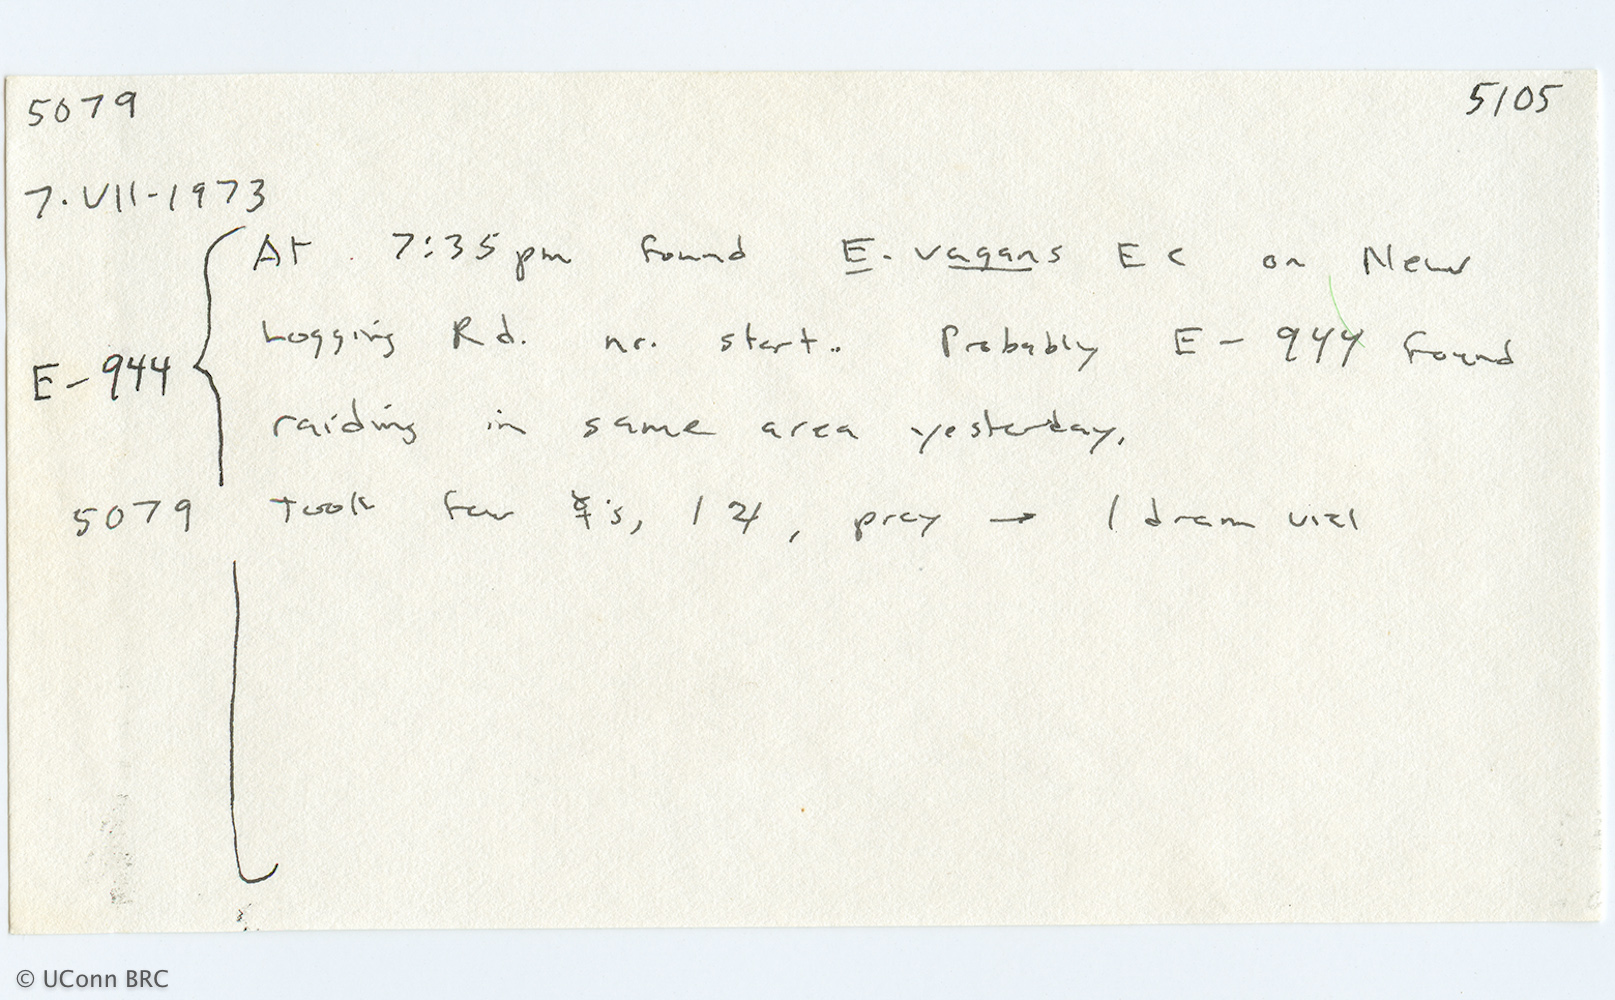 5079 5105
7·VII-1973
At 7:35 pm found E. vagans EC on New
Logging Rd. nr. start. Probably E-944 found
E-944
raiding in same area yesterday.
5079 Took few ☿'s, 1 ♃, prey → 1 dram vial
© UConn BRC